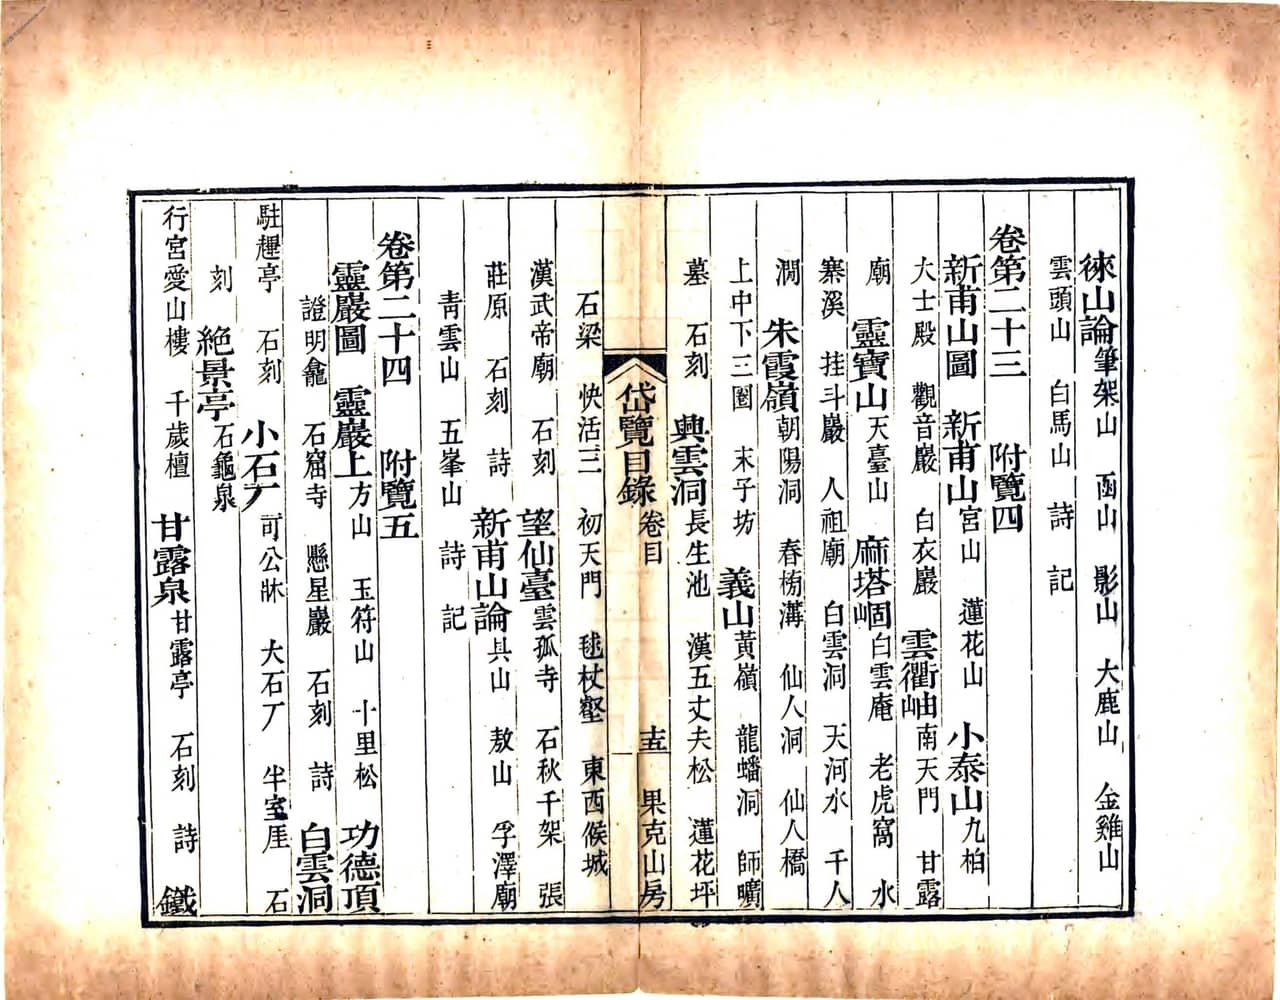 徠山論筆架山　函山　影山　大鹿山　金雞山
雲頭山　白馬山　詩　記
卷第二十三　附覽四
新甫山圖　新甫山宮山　蓮花山　小泰山九柏
大士殿　觀音巖　白衣巖　雲衢岫南天門　甘露
廟　靈寶山天臺山　麻塔崓白雲庵　老虎窩　水
寨溪　挂斗巖　人祖廟　白雲洞　天河水　千人
澗　朱霞嶺朝陽洞　春栫溝　仙人洞　仙人橋
上中下三圈　末子坊　義山黃嶺　龍蟠洞　師曠
墓　石刻　興雲洞長生池　漢五丈夫松　蓮花坪
岱覽目錄　卷目　十五　果克山房
石梁　快活三　初天門　毬杖壑　東西候城
漢武帝廟　石刻　望仙臺雲孤寺　石秋千架　張
莊原　石刻　詩　新甫山論具山　敖山　孚澤廟
青雲山　五峯山　詩　記
卷第二十四　附覽五
靈巖圖　靈巖上方山　玉符山　十里松　功德頂
證明龕　石窟寺　懸星巖　石刻　詩　白雲洞
駐蹕亭　石刻　小石厂　可公牀　大石厂　半室厓　石
刻　絕景亭石龜泉
行宮愛山樓　千歲檀　甘露泉甘露亭　石刻　詩　鐵